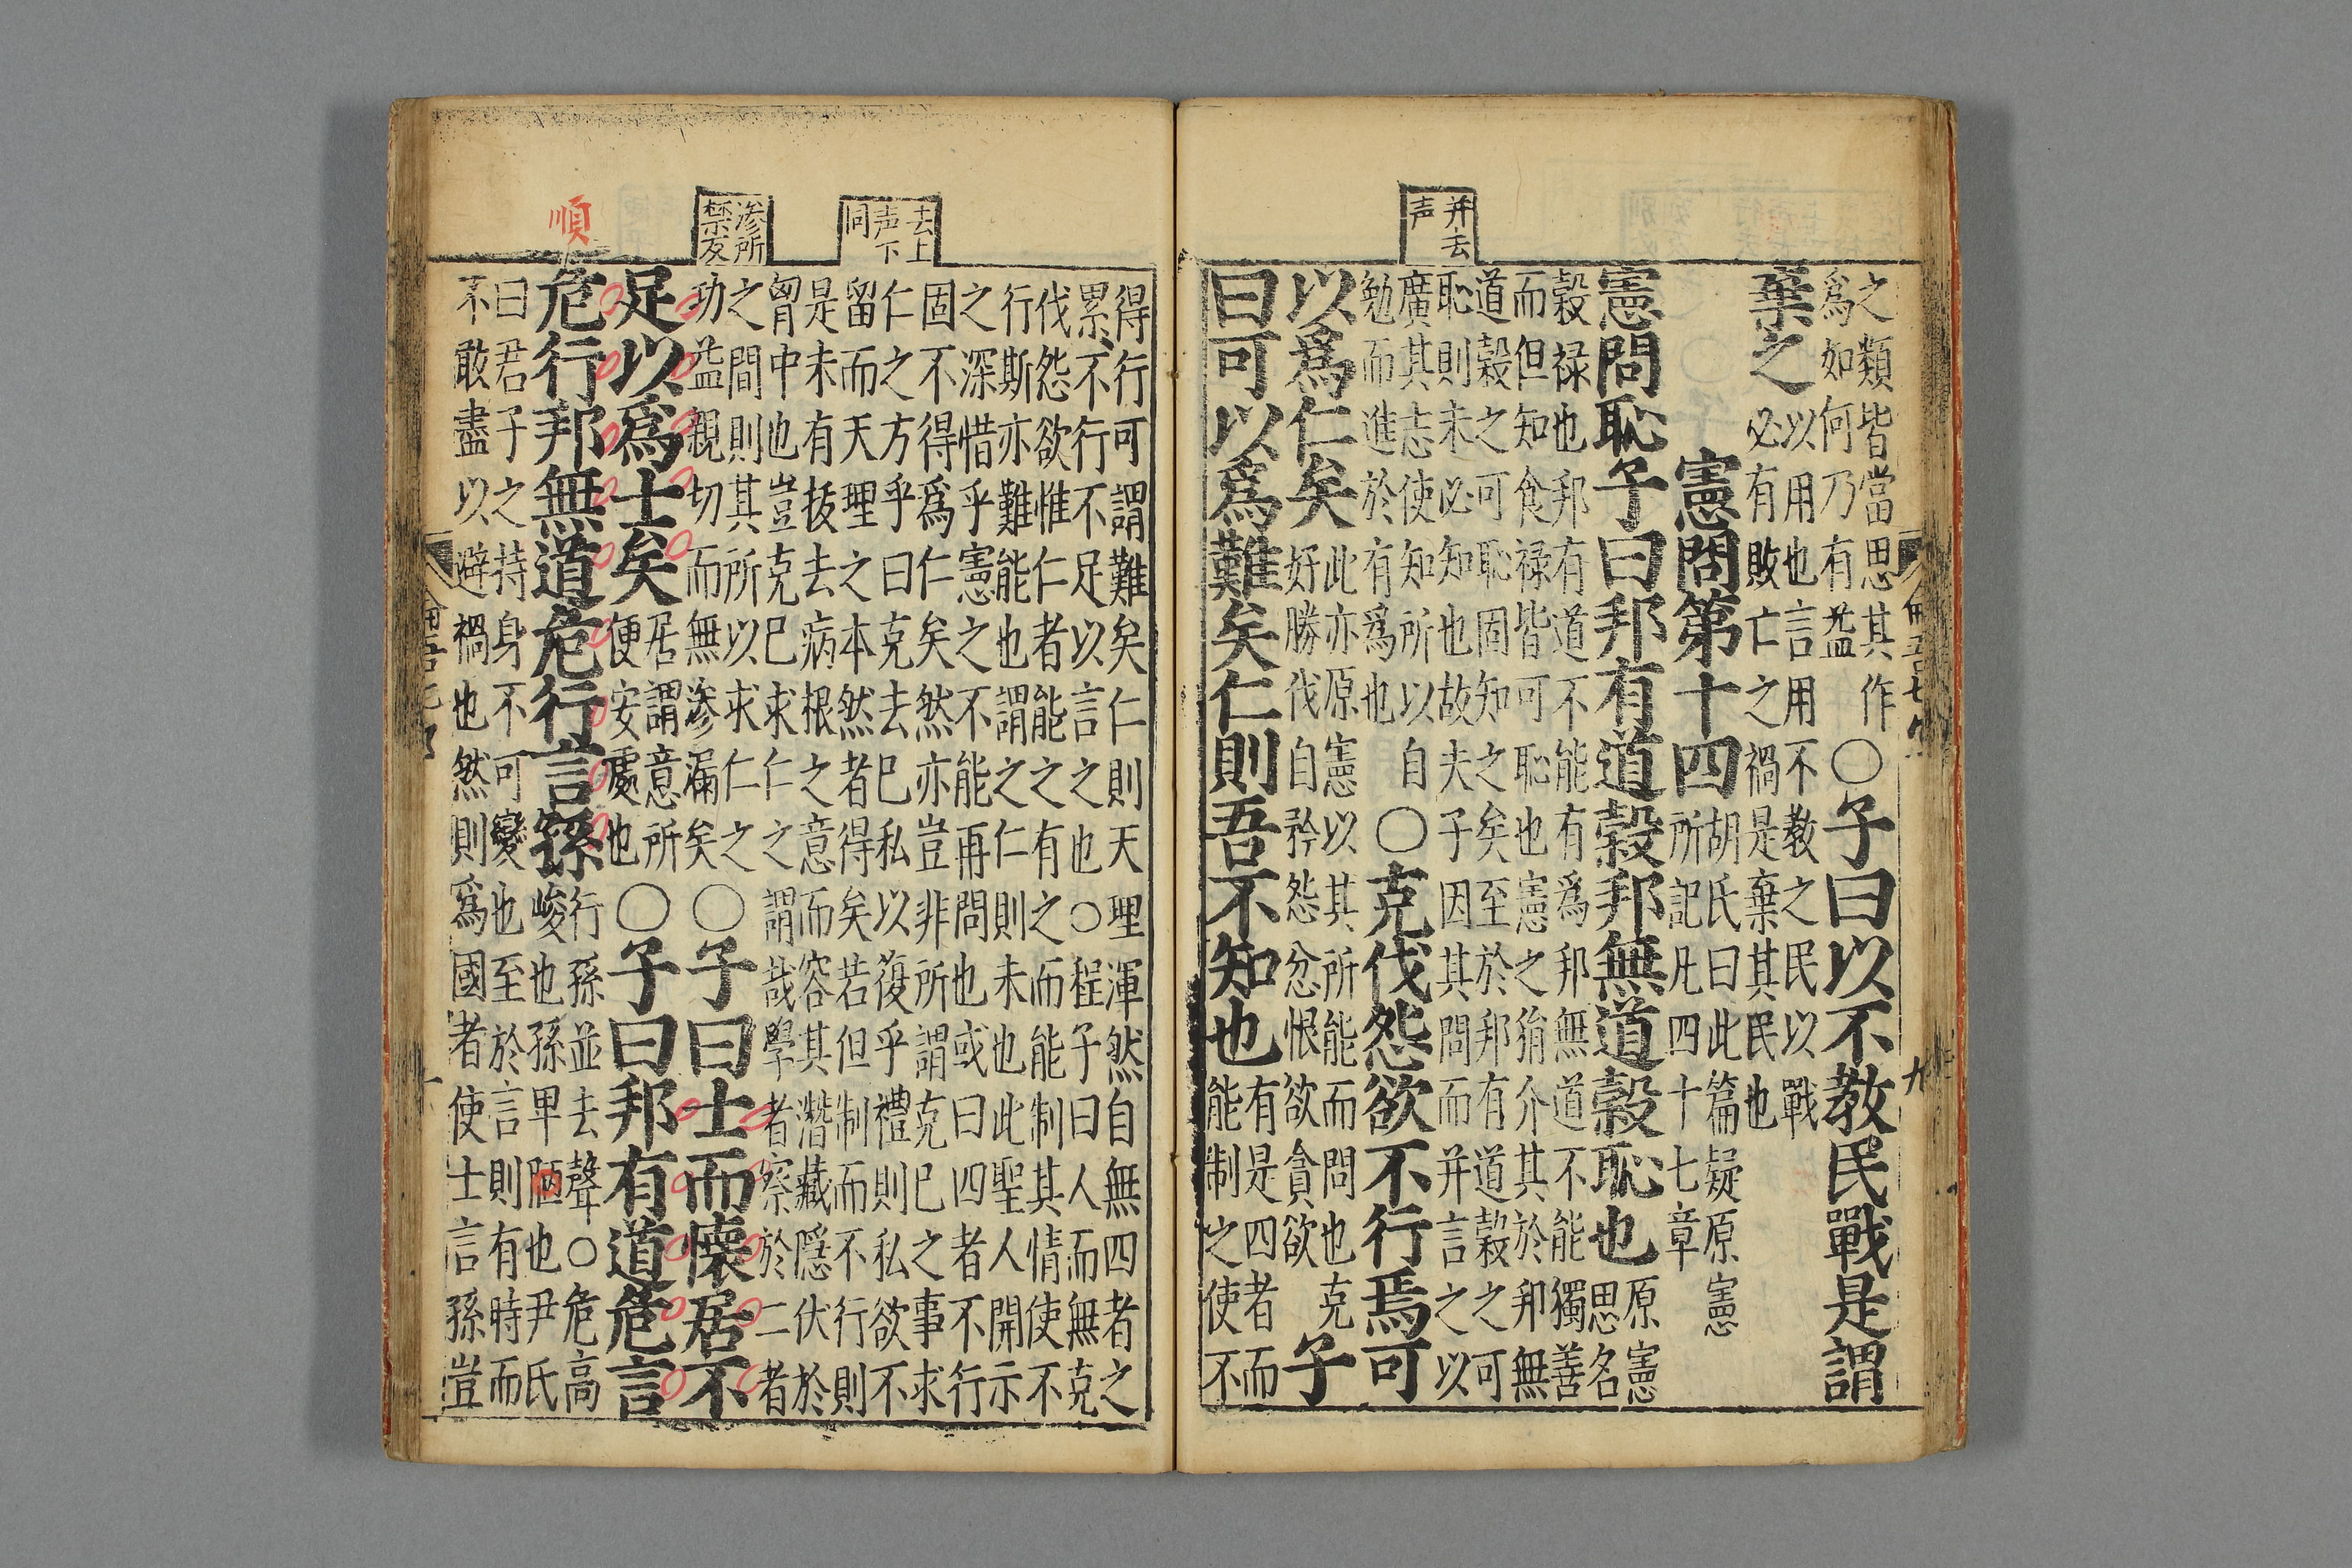 并去
声
之類皆當思其作
爲如何乃有益
〇子曰以不教民戰是謂
棄之
以用也言用不教之民以戰
必有敗亡之禍是棄其民也
憲問第十四
胡氏曰此篇疑原憲
所記凡四十七章
憲問恥子曰邦有道穀邦無道穀恥也
原憲
思名
穀祿也邦有道不能有爲邦無道不能獨善
而但知食祿皆可恥也憲之狷介其於邦無
道穀之可恥固知之矣至於邦有道穀之可
恥則未必知也故夫子因其問而并言之以
廣其志使知所以自
勉而進於有爲也
〇克伐怨欲不行焉可
以爲仁矣
此亦原憲以其所能而問也克
好勝伐自矜怨忿恨欲貪欲
子
曰可以爲難矣仁則吾不知也
有是四者而
能制之使不
去上
声下
同
滲所
禁反
順
得行可謂難矣仁則天理渾然自無四者之
累不行不足以言之也〇程子曰人而無克
伐怨欲惟仁者能之有之而能制其情使不
行斯亦難能也謂之仁則未也此聖人開示
之深惜乎憲之不能再問也或曰四者不行
固不得爲仁矣然亦豈非所謂克已之事求
仁之方乎曰克去已私以復乎禮則私欲不
留而天理之本然者得矣若但制而不行則
是未有拔去病根之意而容其潛藏隱伏於
胷中也豈克已求仁之謂哉學者察於二者
之間則其所以求仁之
功益親切而無滲漏矣
〇子曰士而懷居不
足以爲士矣
居謂意所
便安處也
〇子曰邦有道危言
危行邦無道危行言孫
行孫並去聲〇危高
峻也孫卑陋也尹氏
曰君子之持身不可變也至於言則有時而
不敢盡以避禍也然則爲國者使士言孫豈